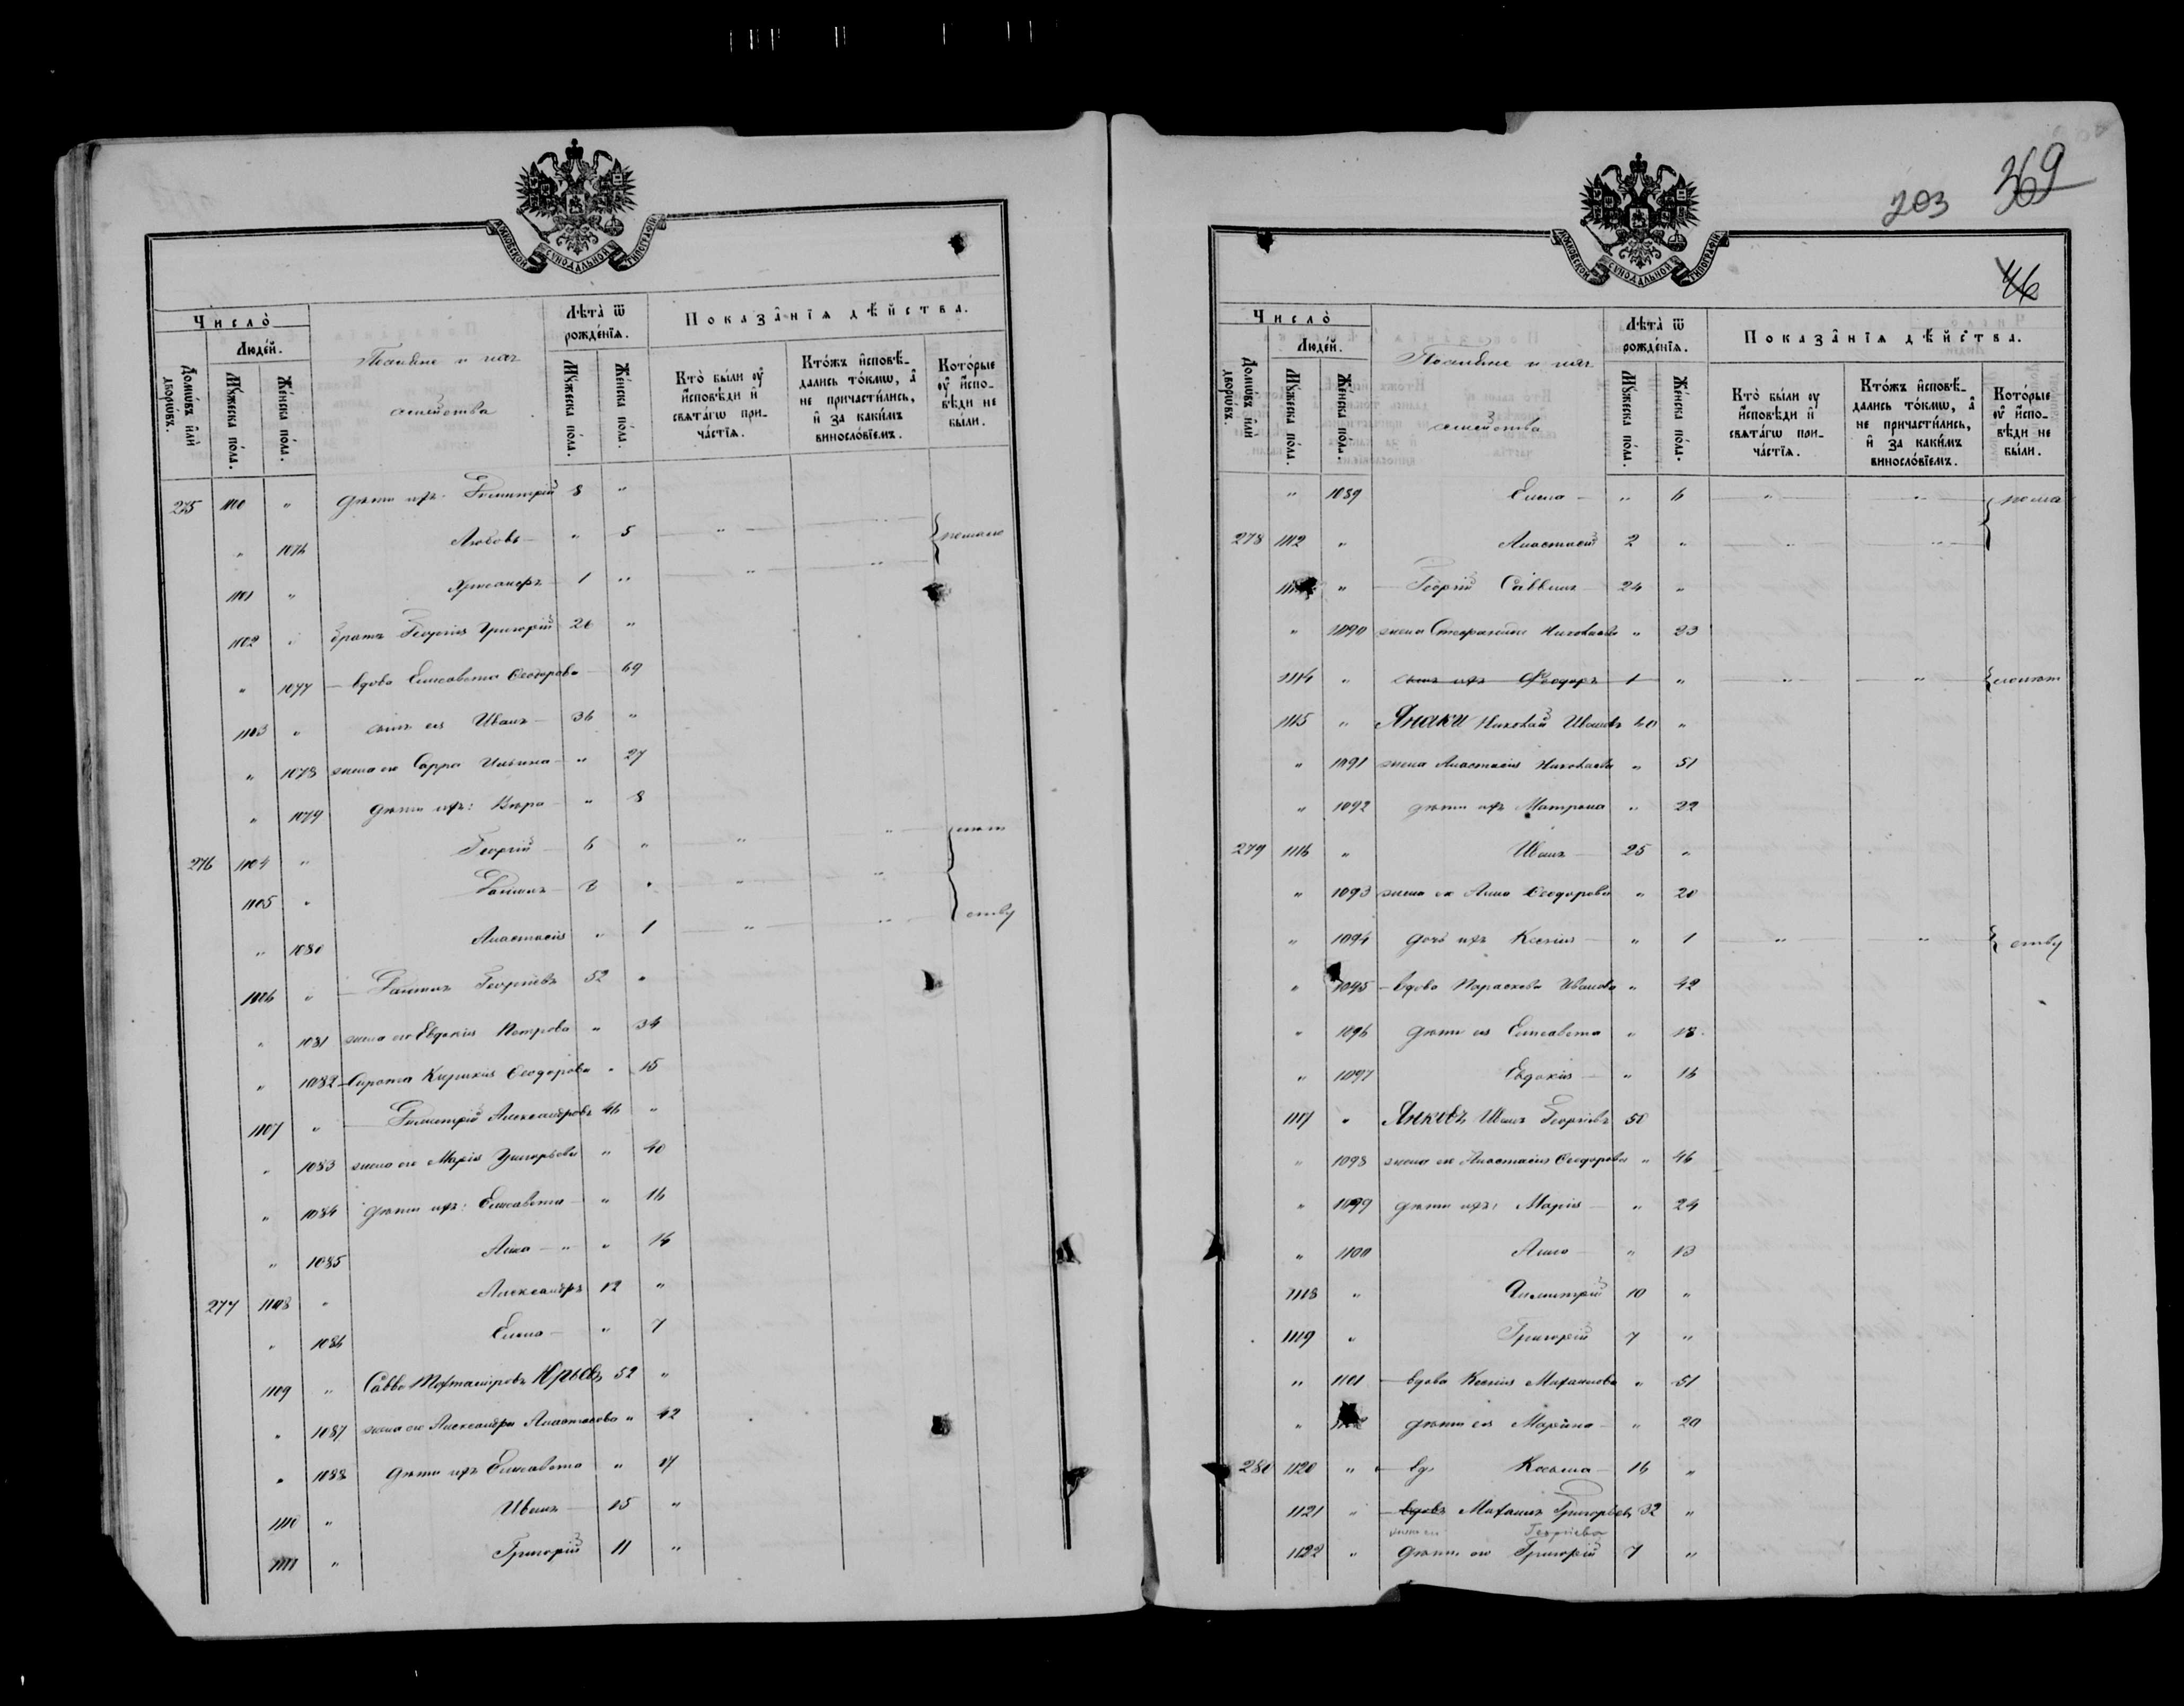 МОСКОВСКОЙ СѴНОДАЛЬНОЙ ТИПОГРАФІИ
Число̀
Людéй.
Домѡ́въ и҆лѝ дворѡ́въ.
Мꙋ́жеска по́ла.
Же́нска по́ла.
Поселяне и ихъ семейства
Лѣ́та ѿ рожде́нїѧ.
Мꙋ́жеска по́ла.
Же́нска по́ла.
Показа̑нїѧ дѣ́йства.
Кто̀ бы́ли ᲂу҆ и҆́сповѣди и҆ свѧта́гѡ прича́стїѧ.
Кто́жъ и҆сповѣ́дались то́кмѡ, а҆ не причасти́лись, и҆ за каки́мъ винословїемъ.
Кото́рые ᲂу҆ и҆́сповѣди не бы́ли.
275 1100 " дѣти ихъ: Димитрій 8 "
" 1076 Любовь — " 5 " "
1101 " Хрисанфъ — 1 " " "
1102 " братъ Георгія Григорій 26 "
" 1077 — вдова Елисавета Ѳеодорова — 69
1103 " сынъ ея Иванъ — 36 "
" 1078 жена его Сарра Ильина — " 27
" 1079 дѣти ихъ: Вѣра — " 8
276 1104 " Георгій — 6 " " "
1105 " "
" 1080 Анастасія " 1 " "
1106 " Георгіевъ 52 "
" 1081 жена его Евдокія Петрова " 34
" 1082 — Сирота Кирикія Ѳеодорова " 15
1107 " — Димитрій Александровъ 46 "
" 1083 жена его Марія Григорьева " 40
" 1084 дѣти ихъ: Елисавета — " 16
" 1085 Анна — " " 14
277 1108 " Александръ 12 "
" 1086 Елена — " 7
1109 " Савва Юрьевъ 52 "
" 1087 жена его Александра Анастасова " 42
" 1088 дѣти ихъ Елисавета " 17
1110 " Иванъ — 15 "
1111 " Григорій 11 "
203 369
46
МОСКОВСКОЙ СѴНОДАЛЬНОЙ ТИПОГРАФІИ
Число̀
Людéй.
Домѡ́въ и҆лѝ дворѡ́въ.
Мꙋ́жеска по́ла.
Же́нска по́ла.
Поселяне и ихъ семейства
Лѣ́та ѿ рожде́нїѧ.
Мꙋ́жеска по́ла.
Же́нска по́ла.
Показа̑нїѧ дѣ́йства.
Кто̀ бы́ли ᲂу҆ и҆́сповѣди и҆ свѧта́гѡ прича́стїѧ.
Кто́жъ и҆сповѣ́дались то́кмѡ, а҆ не причасти́лись, и҆ за каки́мъ винословїемъ.
Кото́рые ᲂу҆ и҆́сповѣди не бы́ли.
" 1089 Елена — " 6 " "
278 1112 " Анастасій 2 " " "
" — Георгій Саввинъ — 24 "
" 1090 жена Николаева " 23
1114 " сынъ ихъ Ѳеодоръ 1 " " "
1115 " Янаки Николай Ивановъ 60 "
" 1091 жена Анастасія Николаева " 51
" 1092 дѣти ихъ Матрона " 22
279 1116 " Иванъ — 25 "
" 1093 жена его Анна Ѳеодорова " 20
" 1094 дочь ихъ Ксенія — " 1 " "
" 1095 — вдова Параскева Иванова " 42
" 1096 дѣти ея Елисавета " 18
" 1097 Евдокія — " 16
1117 " Янковъ Иванъ Георгіевъ 50
" 1098 жена его Анастасія Ѳеодорова " 46
" 1099 дѣти ихъ: Марія — " 24
" 1100 Анна — " 13
1118 " Димитрій 10 "
1119 " Григорій 7 "
" 1101 — вдова Ксенія Михаилова " 51
" дѣти ея Марина — " 20
280 1120 " Косьма — 16 "
1121 " — вдовъ Михаилъ Григорьевъ 32 "
Георгіева
1122 " дѣти его Григорій 7 "